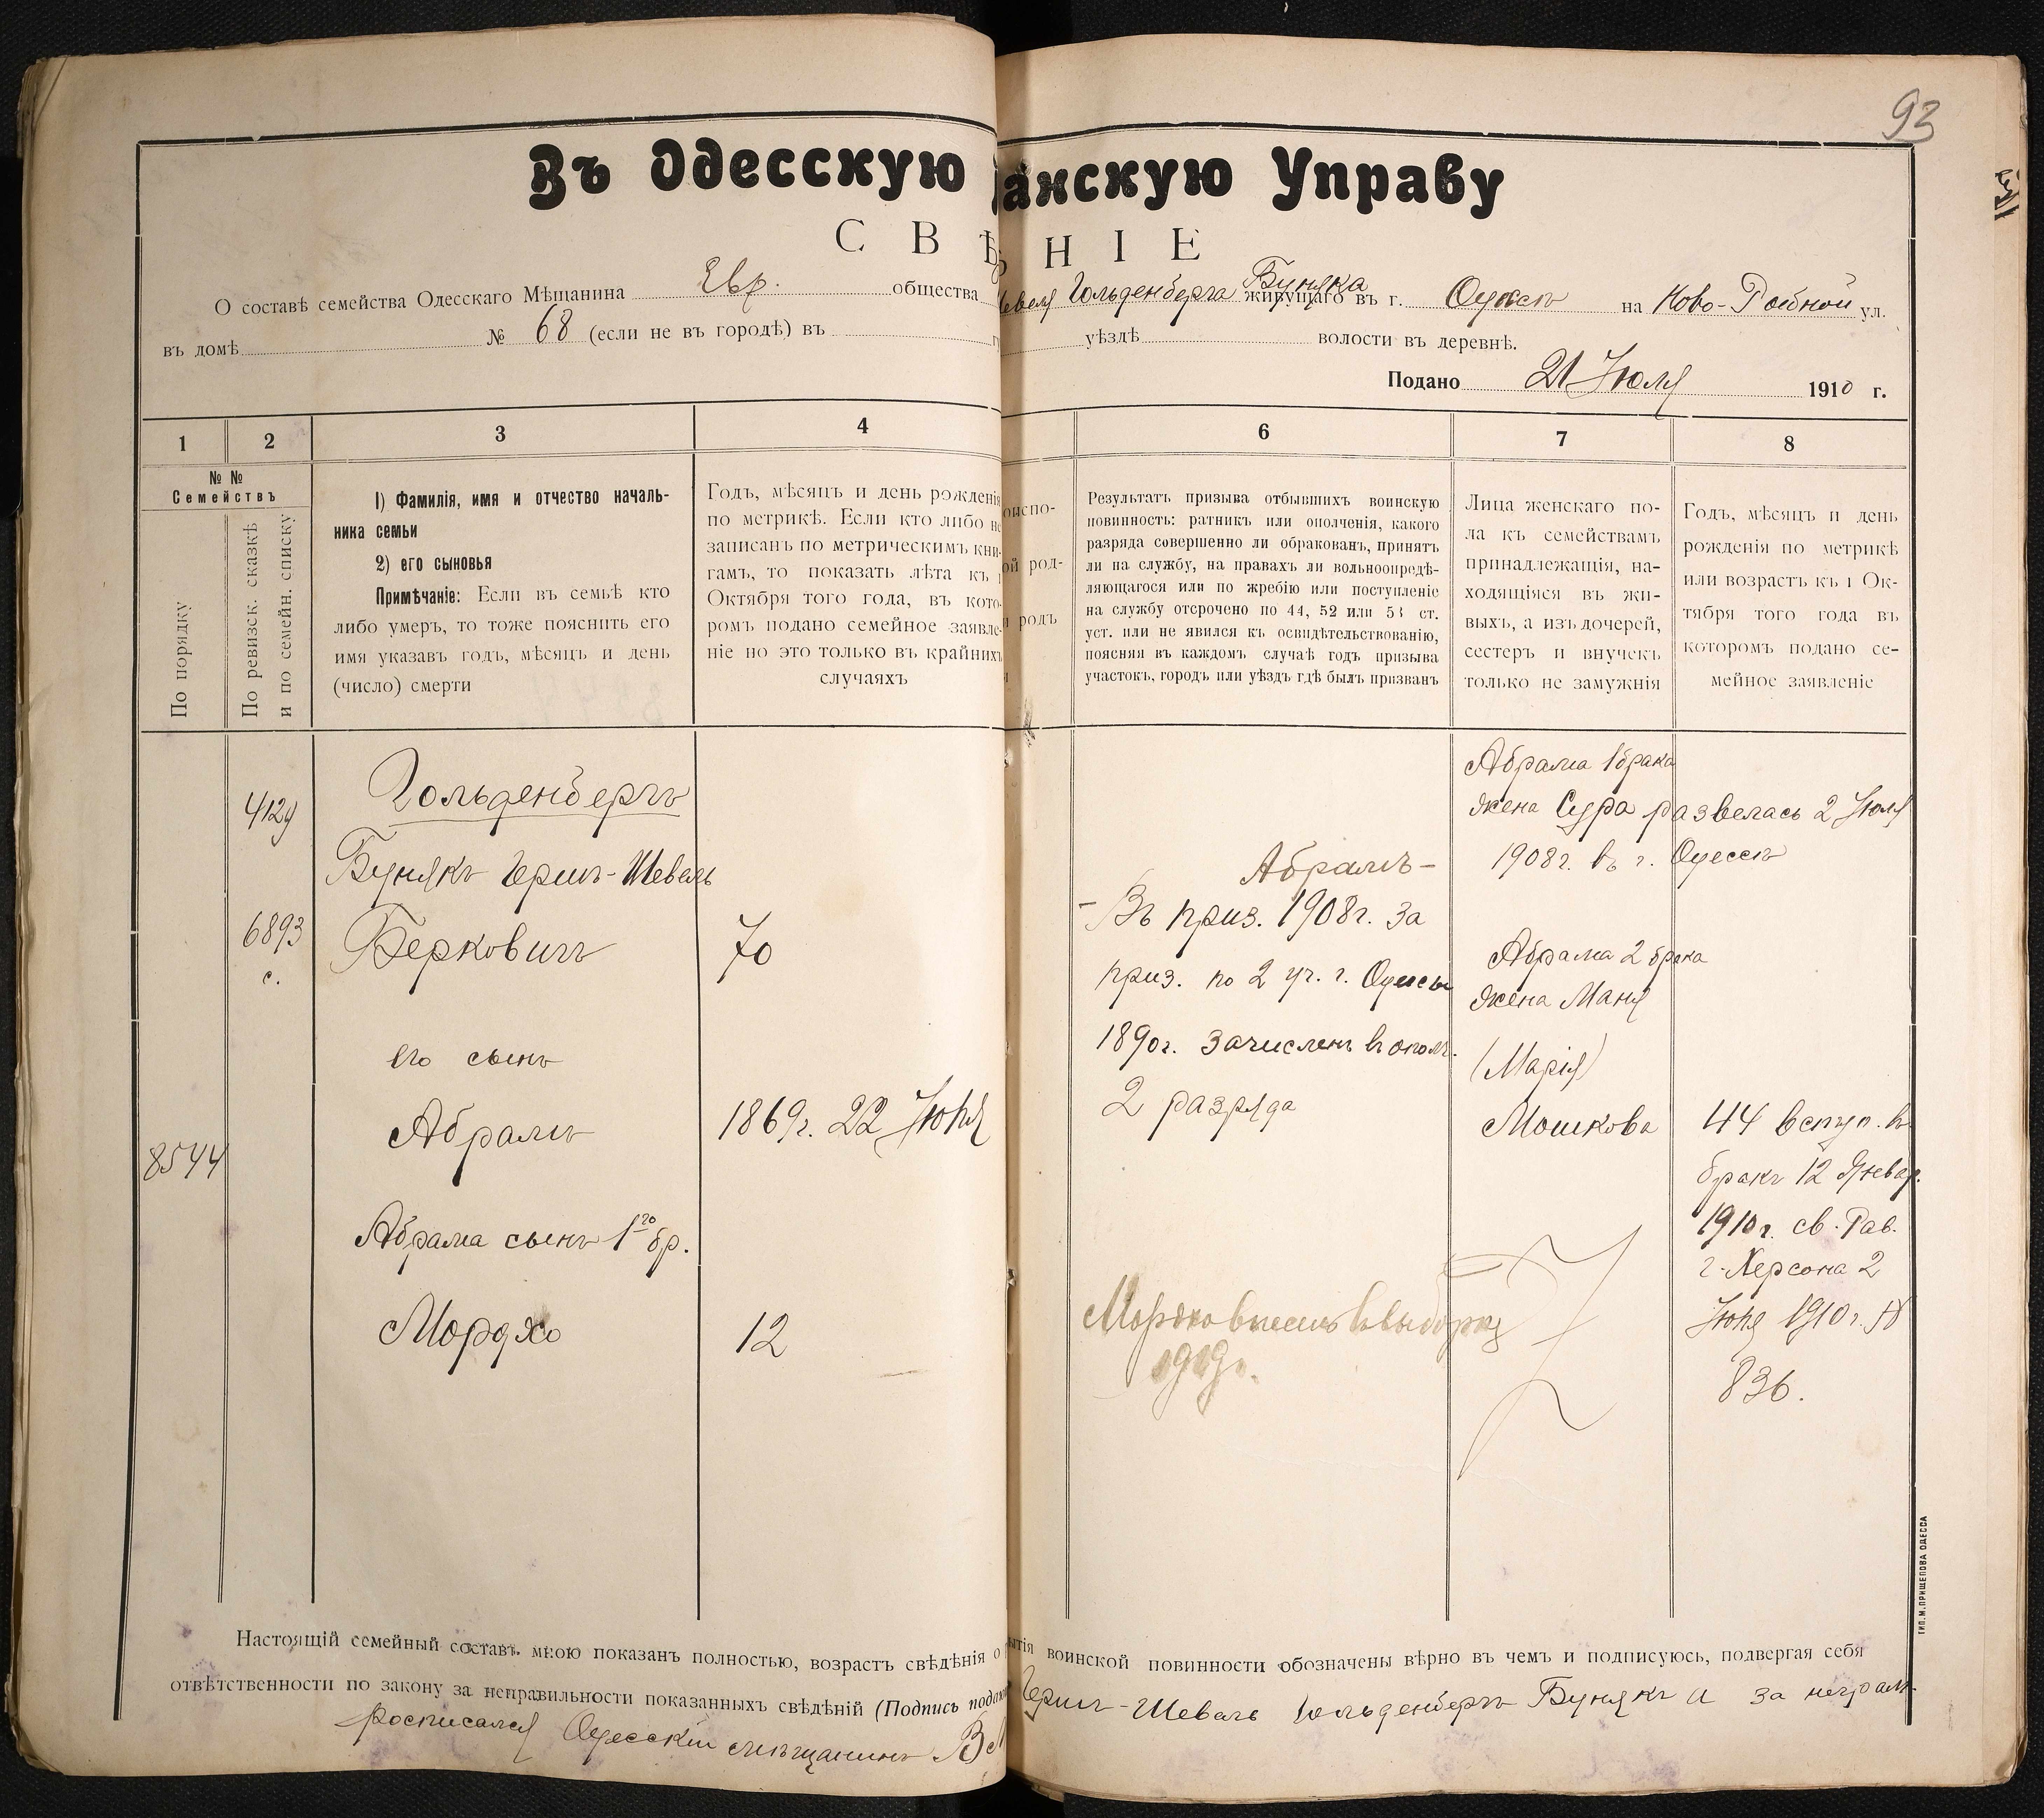 93
Въ Одесскую
анскую Управу
С В Ѣ
Н І Е
О составѣ семейства Одесскаго Мѣщанина Евр. общества
Гольденберга Буняка живущаго въ г. Одессѣ на Ново-Рыбной ул.
въ домѣ № 68 (если не въ городѣ) въ
уѣздѣ волости въ деревнѣ.
Подано 21 Юля 1910 г.
1
2
3
4
6
7
8
№ №
Семействъ
По порядку
По ревизск. сказкѣ
и по семейн. списку
1) Фамилія, имя и отчество началь-
ника семьи
2) его сыновья
Примѣчаніе: Если въ семьѣ кто
либо умеръ, то тоже пояснить его
имя указавъ годъ, мѣсяцъ и день
(число) смерти
Годъ, мѣсяцъ и день рожденія
по метрикѣ. Если кто либо не
записанъ по метрическимъ кни-
гамъ, то показать лѣта къ 1
Октября того года, въ кото-
ромъ подано семейное заявле-
ніе но это только въ крайнихъ
случаяхъ
оиспо-
ой род-
и родъ
Результатъ призыва отбывшихъ воинскую
повинность: ратникъ или ополченія, какого
разряда совершенно ли обракованъ, принятъ
ли на службу, на правахъ ли вольноопредѣ-
ляющагося или по жребію или поступленіе
на службу отсрочено по 44, 52 или 53 ст.
уст. или не явился къ освидѣтельствованію,
поясняя въ каждомъ случаѣ годъ призыва
участокъ, городъ или уѣздъ гдѣ былъ призванъ
Лица женскаго по-
ла къ семействамъ
принадлежащія, на-
ходящіяся въ жи-
выхъ, а изъ дочерей,
сестеръ и внучекъ
только не замужнія
Годъ, мѣсяцъ и день
рожденія по метрикѣ
или возрастъ къ 1 Ок-
тября того года въ
которомъ подано се-
мейное заявленіе
4129
Гольденбергъ
Бунякъ Герш-Шевель
6893
с.
Берковичъ
70
его сынъ
Абрамъ
1869г. 22 Юня
8544
Абрама сынъ 1го бр.
Мордхо
12
Абрамъ -
- Въ приз. 1908г. за
приз. по 2 уч. г. Одессы
1890г. зачисленъ въ ополч.
2 разряда
1919г.
Абрама 1 брака
жена Сура развелась 2 Юля
1908г. въ г. Одессѣ
Абрама 2 брака
жена Маня
(Марія)
Мошкова
44 вступ. въ
бракъ 12 Январ.
1910г. св. Рав.
г. Херсона 2
Юня 1910г. №
836.
Настоящій семейный составъ мною показанъ полностью, возрастъ свѣдѣнія о
ытія воинской повинности обозначены вѣрно въ чемъ и подписуюсь, подвергая себя
отвѣтственности по закону за неправильности показанныхъ свѣдѣній (Подпись подаю
Герш-Шевель Гольденбергъ Бунякъ а за неграм.
росписался Одесскій мѣщанинъ
ТИП. М. ПРИЩЕПОВА ОДЕССА